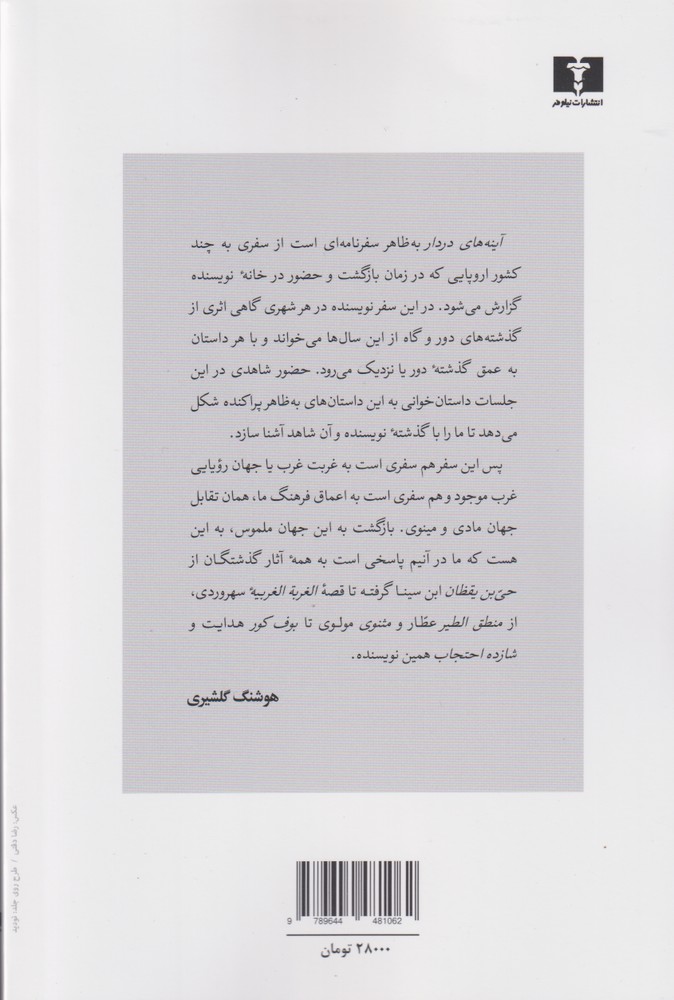 انتشارات نیلوفر
آینه‌های دردار به‌ظاهر سفرنامه‌ای است از سفری به چند
کشور اروپایی که در زمان بازگشت و حضور در خانهٔ نویسنده
گزارش می‌شود. در این سفر نویسنده در هر شهری گاهی اثری از
گذشته‌های دور و گاه از این سال‌ها می‌خواند و با هر داستان
به عمق گذشتهٔ دور یا نزدیک می‌رود. حضور شاهدی در این
جلسات داستان‌خوانی به این داستان‌های به‌ظاهر پراکنده شکل
می‌دهد تا ما را با گذشتهٔ نویسنده و آن شاهد آشنا سازد.
پس این سفر هم سفری است به غربت غرب یا جهان رؤیایی
غرب موجود و هم سفری است به اعماق فرهنگ ما، همان تقابل
جهان مادی و مینوی. بازگشت به این جهان ملموس، به این
هست که ما در آنیم پاسخی است به همهٔ آثار گذشتگان از
حیّ‌بن یقظان ابن سینا گرفته تا قصهٔ الغربة الغربیهٔ سهروردی،
از منطق الطیر عطّار و مثنوی مولوی تا بوف کور هدایت و
شازده احتجاب همین نویسنده.
هوشنگ گلشیری
عکس: رضا دقتی / طرح روی جلد: نودید
9 789644 481062
۲۸۰۰۰ تومان